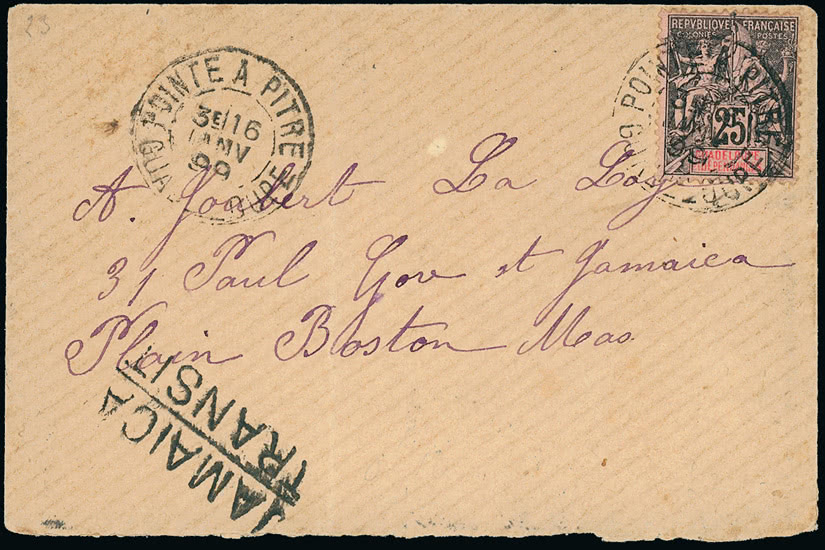 23
POINTE À PITRE
3E/16
JANV
99
GUADELOUPE
REPVBLIQVE FRANÇAISE
COLONIES POSTES
25
GUADELOUPE
ET DÉPENDANCES
POINTE À PITRE
A. Joubert La Loge
31 Paul Gore et Jamaica
Plain Boston Mas
JAMAICA
TRANSIT